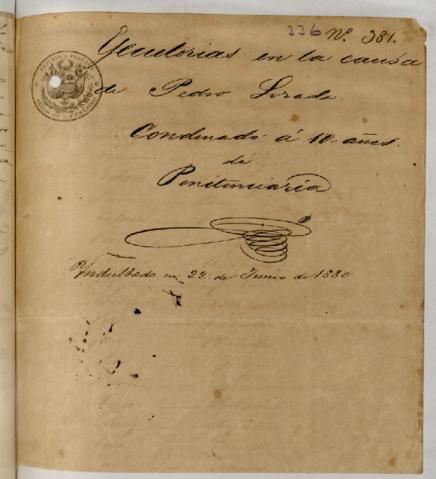 336 Nº. 381.
Yecutorias en la causa
de Pedro
Condenado á 10 años.
de
Penitenciaría
Indultado en 22 de Junio de 1880